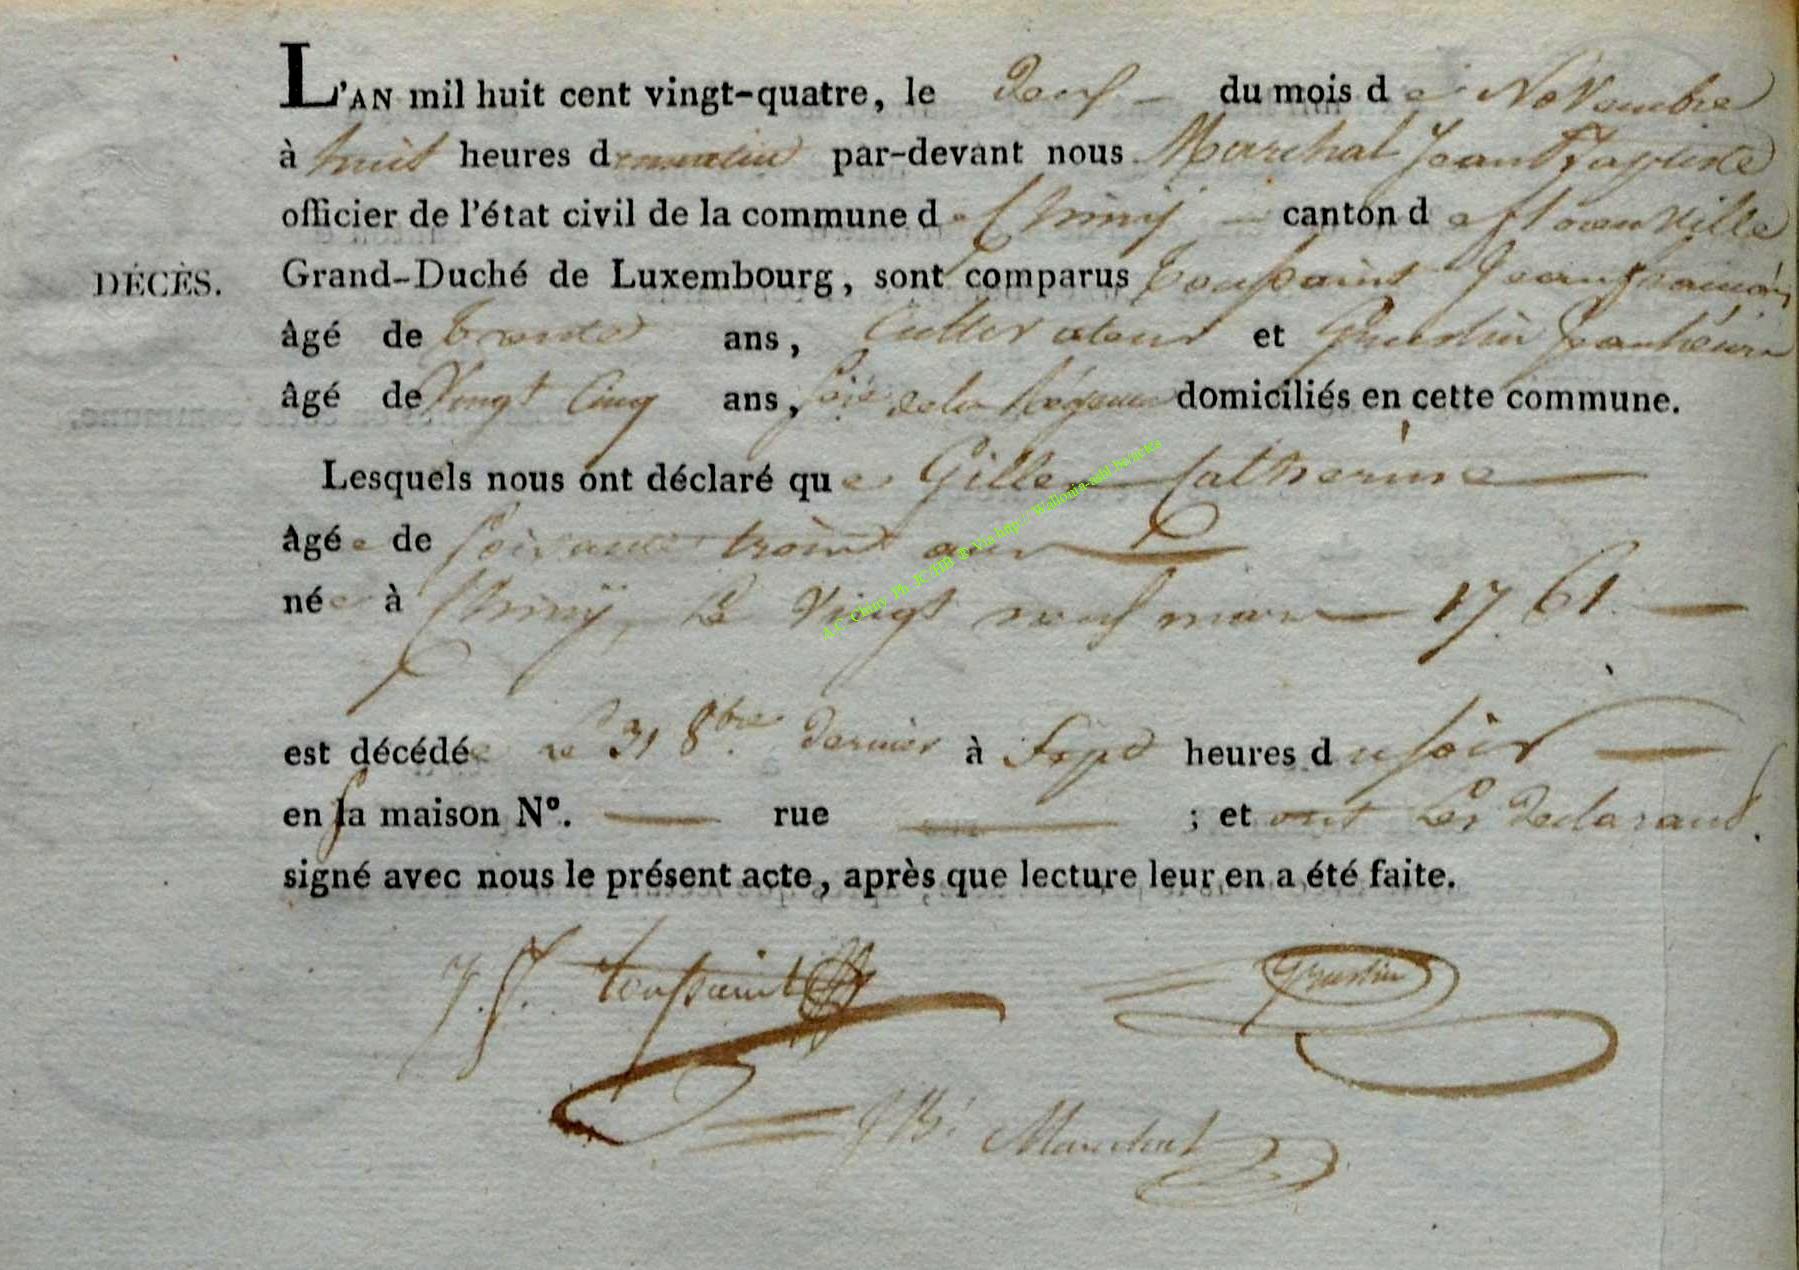 L'AN mil huit cent vingt-quatre, le deux du mois de Novembre
à huit heures du matin par-devant nous Marchal Jean Baptiste
officier de l'état civil de la commune de Chiny canton de florenville
DÉCÈS.
Grand-Duché de Luxembourg, sont comparus Toussaint Jean francois
âgé de trente ans, Cultivateur et Grustin Jean henri
âgé de Vingt Cinq ans, domiciliés en cette commune.
Lesquels nous ont déclaré que Gille Catherine
âgée de soixante trois ans
née à Chiny, le Vingt neuf mars 1761
est décédée le 31 8bre dernier à sept heures du soir
en sa maison N°. rue ; et ont les declarans
signé avec nous le présent acte, après que lecture leur en a été faite.
J. f. toussaint Grustin
JBte Marchal
A.C. Chiny Ph. JC HB ® Via http:// Wallonia-asbl.be/actes